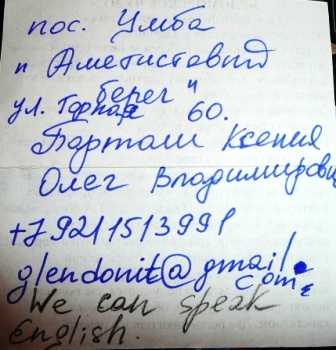 пос. Умба
п Аметистовый
берег"
ул. Горная 60.
Ксения
Олег Владимирович
+79211513991
glendonit@gmail.
com
We can speak
English.